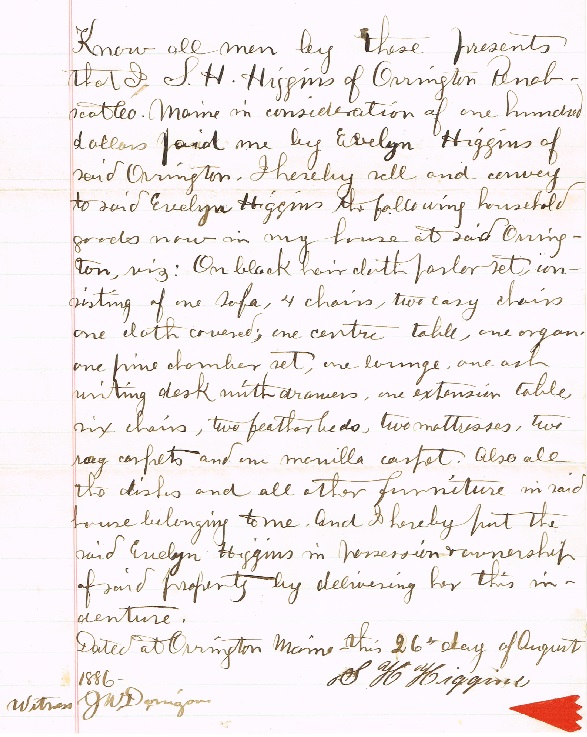 Know all men by these presents
that I S. H. Higgins of Orrington Penob-
scot Co. Maine in consideration of one hundred
dollars paid me by Evelyn Higgins of
said Orrington. I hereby sell and convey
to said Evelyn Higgins the following household
goods now in my house at said Orring-
ton, viz: On black hair cloth parlor set, con-
sisting of one sofa, 4 chairs, two easy chairs
one cloth covered; one centre table, one organ.
one pine chamber set, one lounge, one ash
writing desk with drawers, one extension table
six chairs, two feather beds, two mattresses, two
rag carpets and one manilla carpet. Also all
the dishes and all other furniture in said
house belonging to me. And I hereby put the
said Evelyn Higgins in possession & ownership
of said property by delivering her this in-
denture.
Dated at Orrington Maine this 26th day of August
1886-
S H Higgins
Witness J W